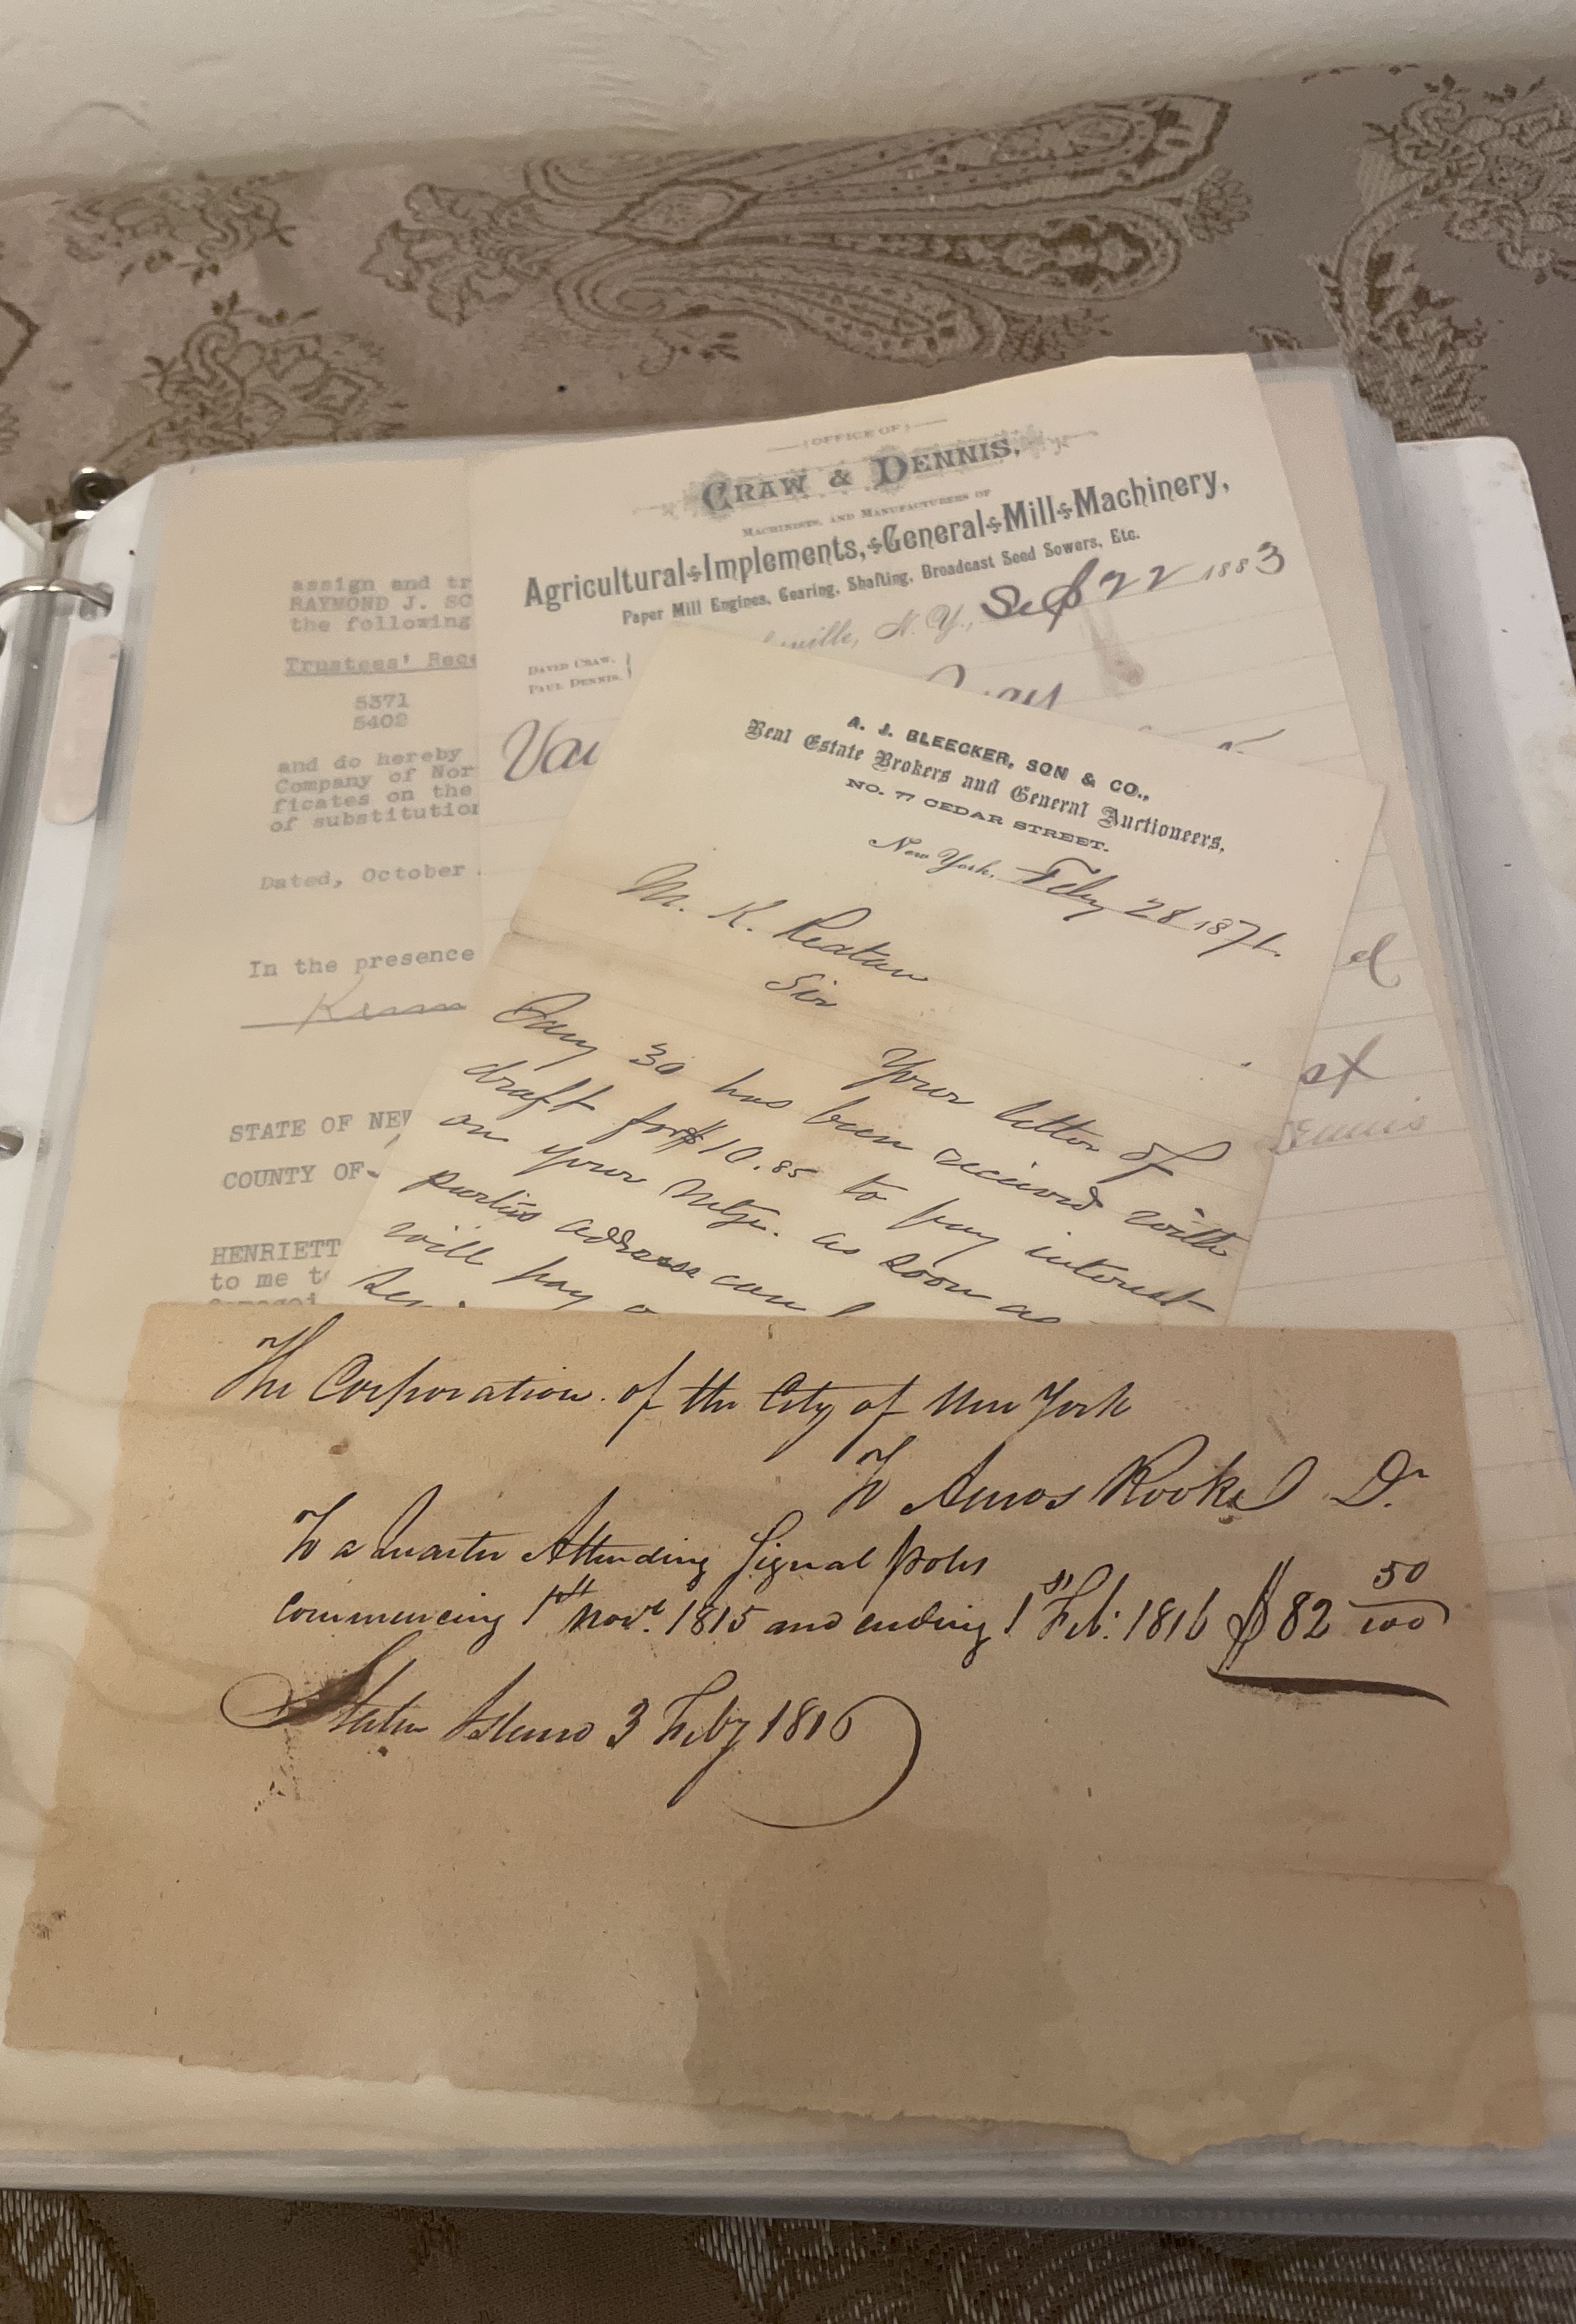 assign and tr
RAYMOND J. SC
the following
Trustees' Rece
5371
5402
and do hereby
Company of Nor
ficates on the
of substitution
Dated, October
In the presence
STATE OF NEW
COUNTY OF
HENRIETT
to me t
(OFFICE OF)
CRAW & DENNIS,
MACHINISTS, AND MANUFACTURERS OF
Agricultural Implements, General Mill Machinery,
Paper Mill Engines, Gearing, Shafting, Broadcast Seed Sowers, Etc.
ville, N. Y., Sept 22 1883
DAVID CRAW,
PAUL DENNIS,
Van
d
st
Dennis
A. J. BLEECKER, SON & CO.,
Real Estate Brokers and General Auctioneers,
NO. 77 CEDAR STREET.
New York, Feby 28 1871.
M. K.
Sir
Your letter of
Jany 30 has been received with
draft for $10.85 to pay interest
on your Mtge. as soon as
parties address can
will pay
The Corporation of the City of New York
To Amos Rooke Dr
To a Quarter Attending Signal poles
Commencing 1st Novr. 1815 and ending 1st Feb: 1816 $82 50/100
Staten Island 3 Feby 1816